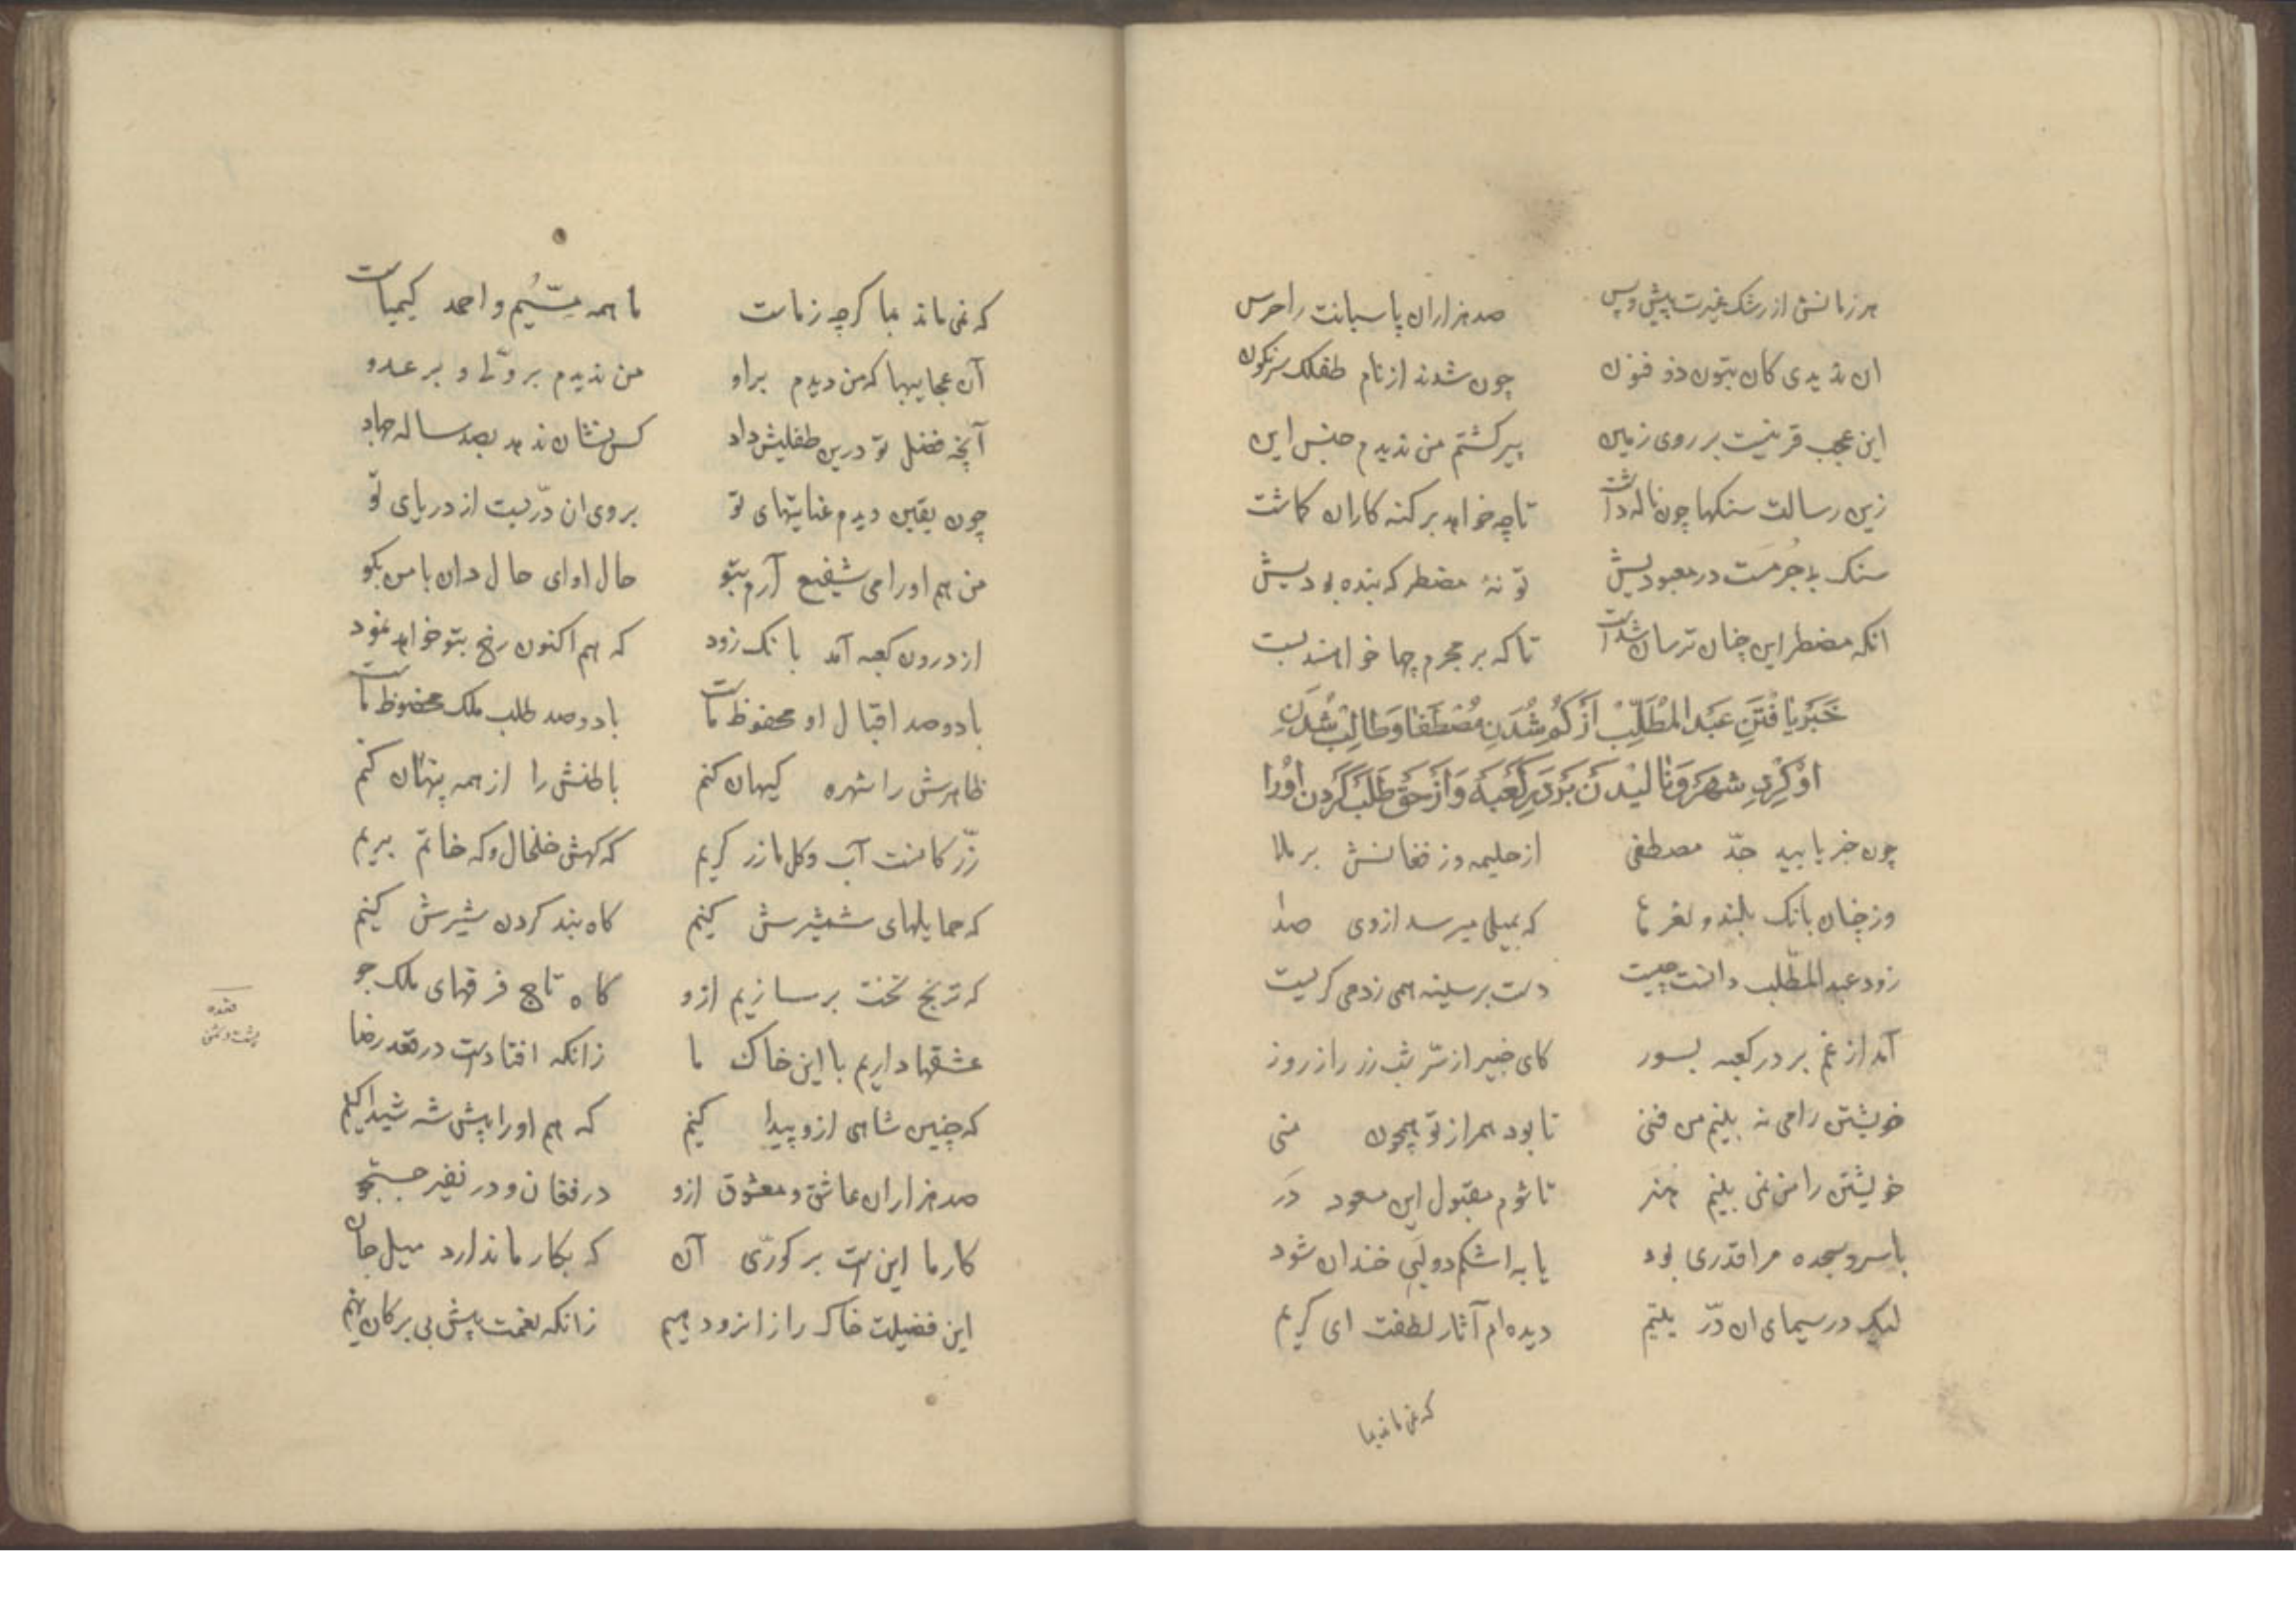 هر زمانش از رشک غیرت پیش و پس صد هزاران پاسبانت را حرس
ان ندیدی کان بتون ذو فنون چون شدند از نام طفلک سرنکون
این عجب قرنیست بر روی زمین پیر کشتم من ندیدم جنس این
زین رسالت سنکها چون ناله داشت تا چه خواهد بر کنه کاران کاشت
سنک بی جُرمست در معبودیش تو نهٔ مضطر که بنده بودیش
انکه مضطر این چنان ترسان شدست تا که بر مجرم چها خواهند بست
خَبَر یافْتَنِ عَبْدالمُطَّلِبْ اَزْ کُم شُدَنِ مُصْطَفٰا وَ طالِبْ شُدَنِ
اوْ کِرْدِ شهر وَ نالیٖدَنْ بَرْ دَرِ کَعْبَه وَ اَزْ حَقْ طَلَبْ کَرْدَن اوْرا
چون خبر یابید جدّ مصطفی از حلیمه وز فغانش بر ملا
وز چنان بانک بلند و نعرها که بمیلی میرسد از وی صدا
زود عبد المطّلب دانست چیست دست بر سینه همی زد می کریست
آمد از غم بر در کعبه بسوز کای خبیر از سّر شب وز راز روز
خویشتن را می نه بینم من فنی تا بود همراز تو همچون منی
خویشتن را من نمی بینم هنر تا شوم مقبول این مسعود دَر
یا سر و سجده مرا قدری بود یا به اشکم دولتی خندان شود
لیک در سیمای ان درّ یتیم دیده ام آثار لطفت ای کریم
که نمی ماند بما
که نمی ماند بما کرچه ز ماست ما همه مسّیم و احمد کیمیاست
آن عجایبها که من دیدم برو من ندیدم بر ولّی و بر عدو
آنچه فضل تو درین طفلیش داد کس نشان ندهد بصد ساله جهاد
چون یقین دیدم عنایتهای تو بر وی ان درّیست از دریای تو
من هم اورا می شفیع آرم بتو حال او ای حال دان با من بکو
از درون کعبه آمد بانک زود که هم اکنون رخ بتو خواهد نمود
با دو صد اقبال او محفوظ ماست با دو صد طلب ملک محفوظ ماست
ظاهرش را شهره کیهان کنم باطنش را از همه پنهان کنم
زّر کانست آب و کل ما زر کریم که کهش خلخال و که خاتم بریم
که حمایلهای شمشیرش کنیم کاه بند کردن شیرش کنیم
که ترنج تخت بر سازیم ازو کاه تاج فرقهای ملک جو
عشقها داریم با این خاک ما زانکه افتادست در قعده رضا
که چنین شاهی ازو پیدا کنیم که هم اورا پیش شه شیدا کنیم
صد هزاران عاشق و معشوق ازو در فغان و در نفیر جستجو
کار ما این ست بر کوریّ آن که بکار ما ندارد میل جان
این فضیلت خاک را زانرو دهیم زانکه نعمت پیش بی برکان نهیم
قعده